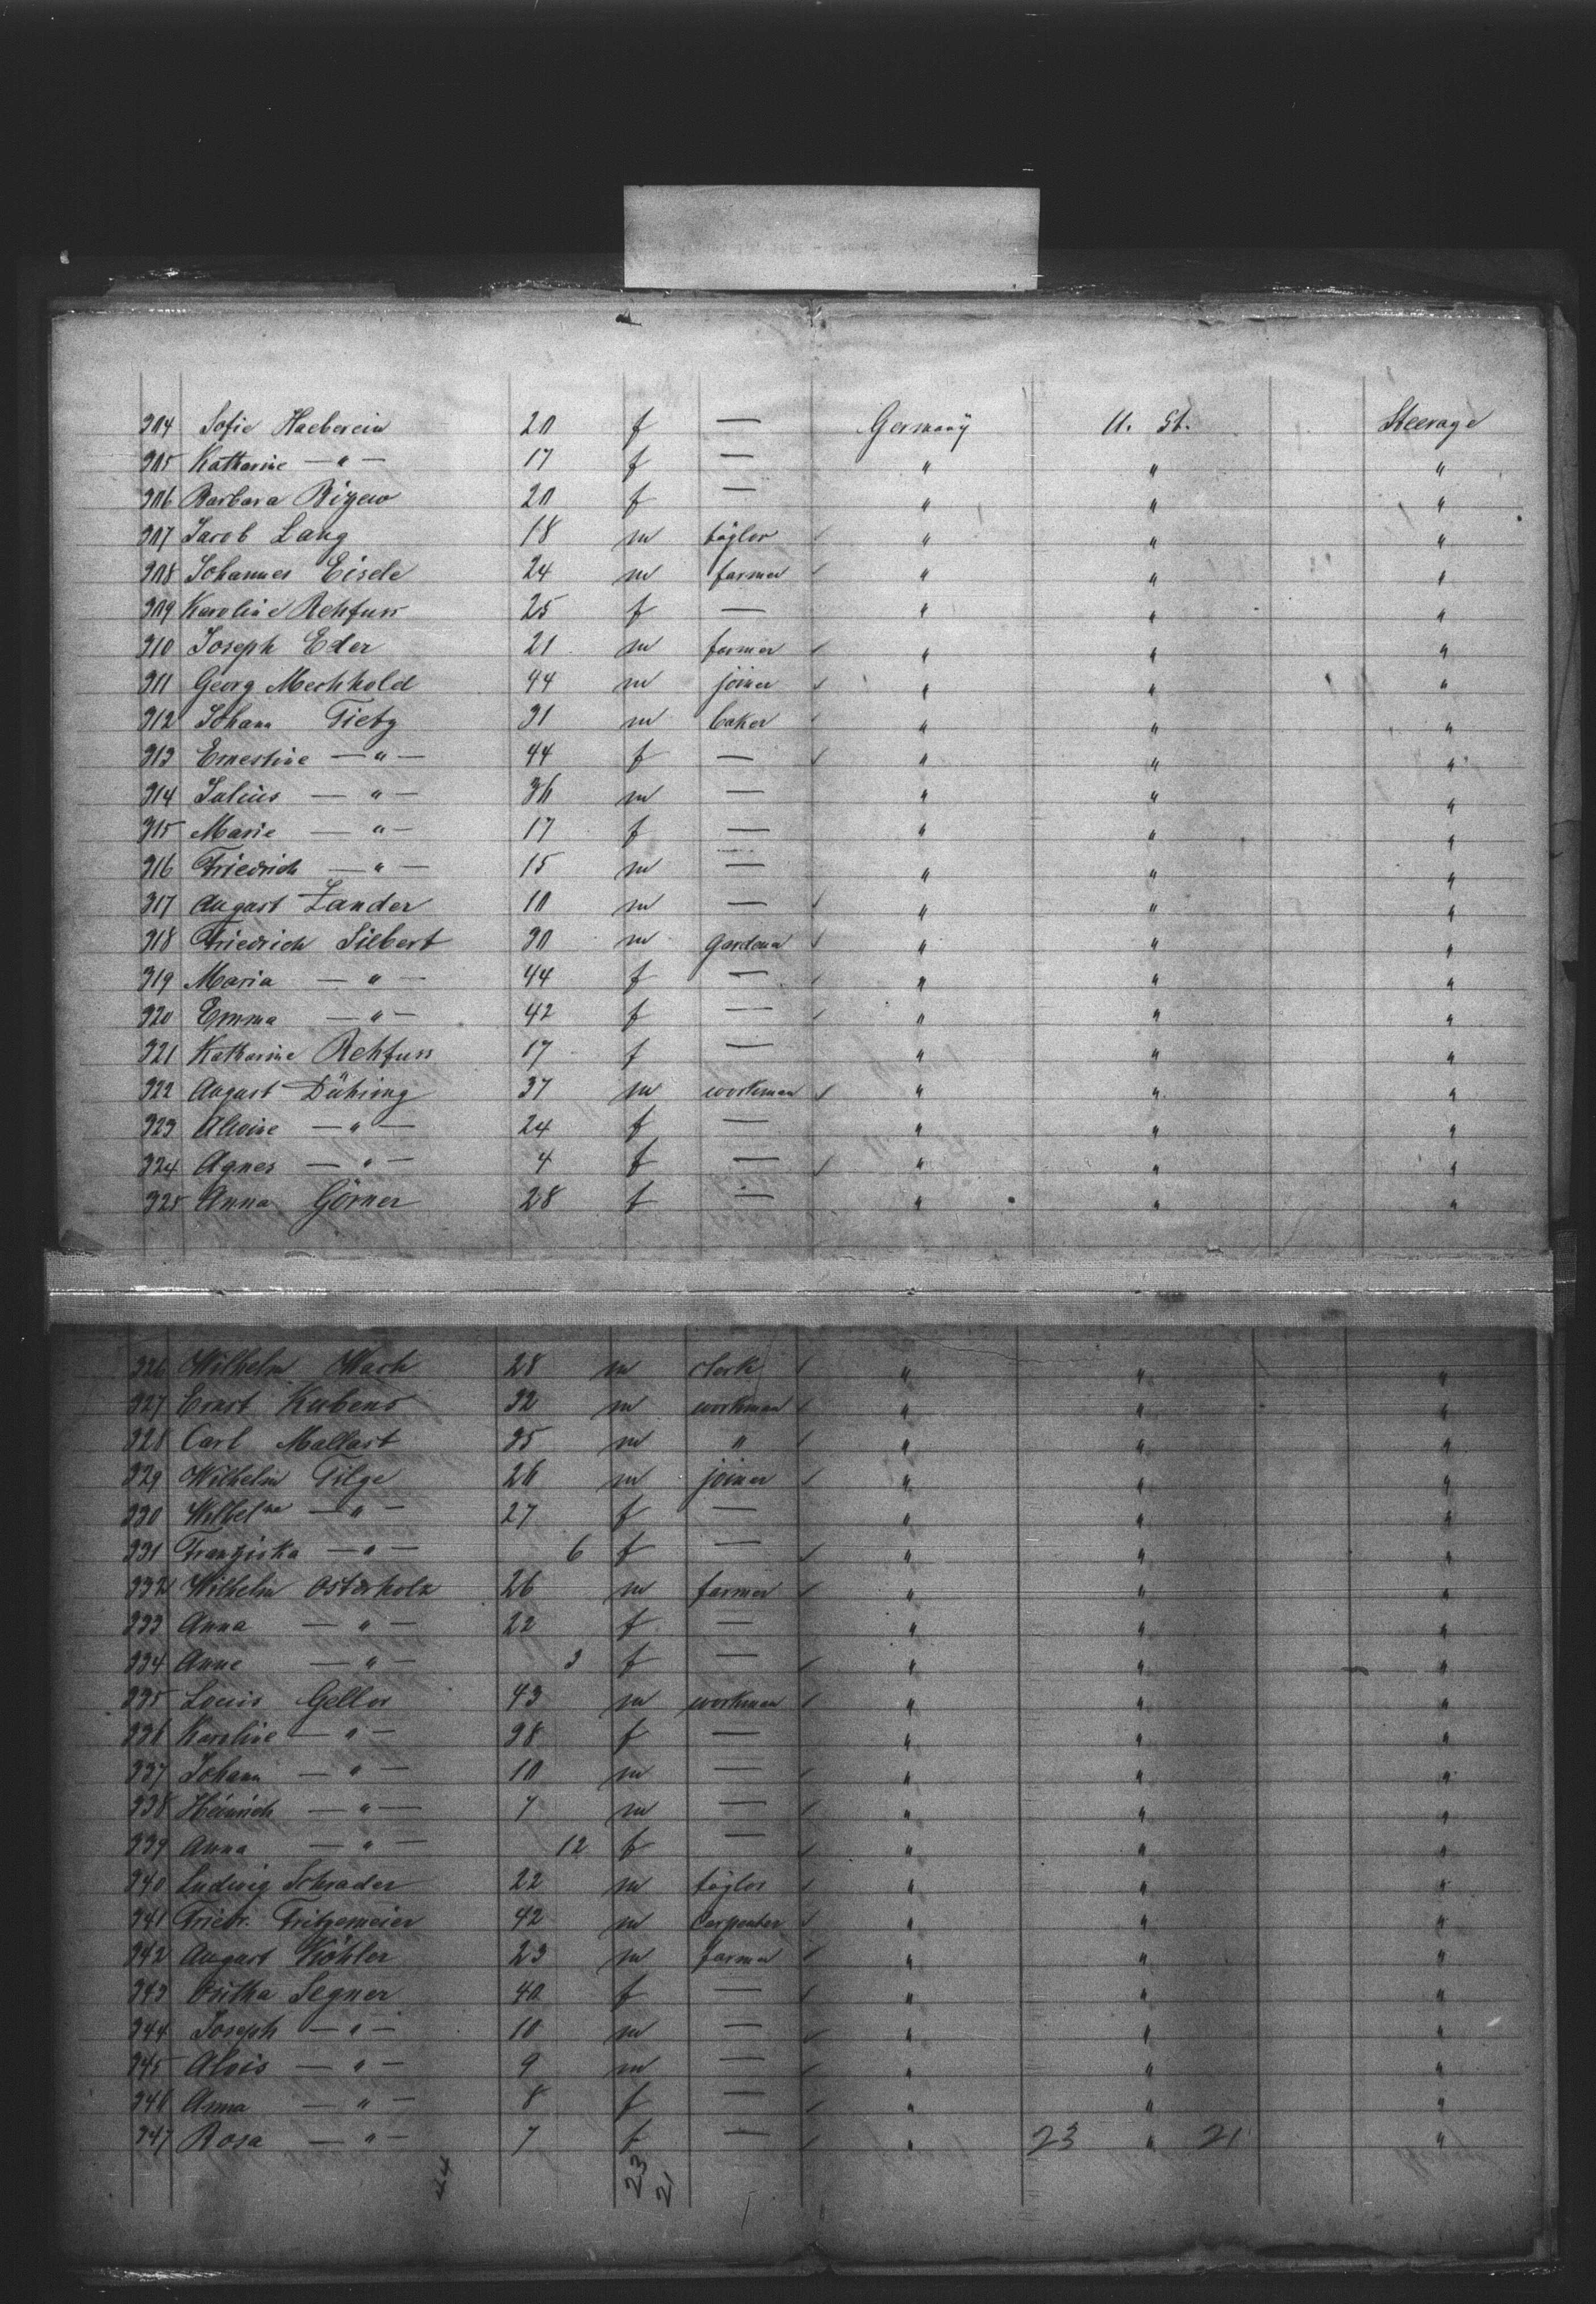 304 Sofie Haeberein 20 f — Germany U. St. Steerage
305 Katharine — " — 17 f — " " "
306 Barbara Bizew 20 f — " " "
307 Jacob Lang 18 m taylor " " "
308 Johannes Eisele 24 m farmer " " "
309 Karoline Rehfuss 25 f — " " "
310 Joseph Eder 21 m farmer " " "
311 Georg Mechhold 44 m joiner " " "
312 Johann Tietz 31 m baker " " "
313 Ernestine — " — 44 f — " " "
314 Julius — " — 30 m — " " "
315 Marie — " — 17 f — " " "
316 Friedrich — " — 15 m — " " "
317 August Zander 10 m — " " "
318 Friedrich Siebert 30 m gardener " " "
319 Maria — " — 44 f — " " "
320 Emma — " — 42 f — " " "
321 Katharine Rehfuss 17 f — " " "
322 August Dühring 37 m workman " " "
323 Alwine — " — 24 f — " " "
324 Agnes — " — 4 f — " " "
325 Anna Görner 28 f — " " "
326 Wilhelm Wach 28 m clerk " " "
327 Ernst Kubens 32 m workman " " "
328 Carl Mallast 35 m " " " "
329 Wilhelm Tilge 26 m joiner " " "
330 Wilhelme — " — 27 f — " " "
331 Franziska — " — 6 f — " " "
332 Wilhelm Osterholz 26 m farmer " " "
333 Anna — " — 22 f — " " "
334 Anne — " — 3 f — " " "
335 Louis Geller 43 m workman " " "
336 Karoline — " — 38 f — " " "
337 Johann — " — 10 m — " " "
338 Heinrich — " — 7 m — " " "
339 Anna — " — 12 f — " " "
340 Ludwig Schrader 22 m taylor " " "
341 Friedr. Fritzemeier 42 m carpenter " " "
342 August Köhler 23 m farmer " " "
343 Segner 40 f — " " "
344 Joseph — " — 10 m — " " "
345 Alois — " — 9 m — " " "
346 Anna — " — 8 f — " " "
347 Rosa — " — 7 f — " 23 " 21 "
44 23 21